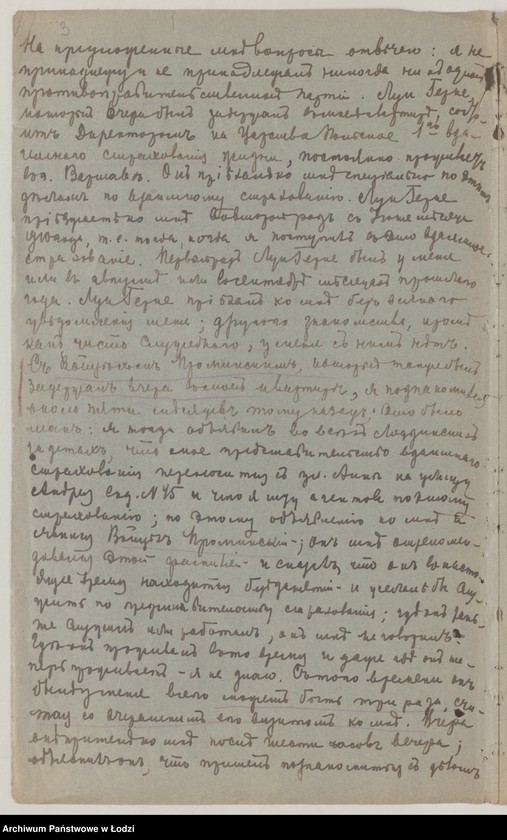 3
На предложенные мне вопросы отвечаю: я не
принадлежу и не принадлежалъ никогда ни къ одной
противоправительственной партіи. Луи Герке,
который вчера былъ задержанъ въ моей квартирѣ, состо-
итъ Директоромъ на Царство Польское 1го вза-
имнаго страхованія жизни, постоянно проживаетъ
въ г. Варшавѣ. Онъ пріѣхалъ ко мнѣ спеціально по
дѣламъ по взаимному страхованію. Луи Герке
пріѣзжаетъ ко мнѣ
т.е. тогда, когда я поступилъ въ это взаимное
страхованіе. Первый разъ Луи Герке былъ у меня
или въ августѣ или въ сентябрѣ мѣсяцѣ прошлаго
года. Луи Герке пріѣхалъ ко мнѣ безъ всякаго
увѣдомленія меня; другого знакомства, кромѣ
какъ чисто служебнаго, у меня съ нимъ нѣтъ.
Съ Войцѣхомъ Проминскимъ, который также былъ
задержанъ вчера въ моей квартирѣ, я познакомился
около пяти мѣсяцевъ тому назадъ. Это было
такъ: я тогда объявилъ во всѣхъ Лодзинскихъ
газетахъ, что мое представительство взаимнаго
страхованія переносится съ ул. Анны на улицу
Андрея под. № 5 и что я ищу агентовъ по этому
страхованію; по этому объявленію ко мнѣ и
явился Войцѣхъ Проминскій; онъ мнѣ отрекомен-
довался этой фамиліей и сказалъ что онъ въ насто-
ящее время находится безъ занятій и желалъ бы слу-
жить по представительству страхованія; гдѣ онъ рань-
ше служилъ или работалъ, онъ мнѣ не говорилъ.
Гдѣ онъ проживалъ въ то время и даже гдѣ онъ те-
перь проживаетъ - я не знаю. Съ того времени онъ
былъ у меня всего можетъ быть три раза, счи-
тая со вчерашнимъ его визитомъ ко мнѣ. Вчера
онъ пришелъ ко мнѣ послѣ шести часовъ вечера;
объяснилъ онъ, что пришелъ познакомиться съ дѣломъ
Archiwum Państwowe w Łodzi